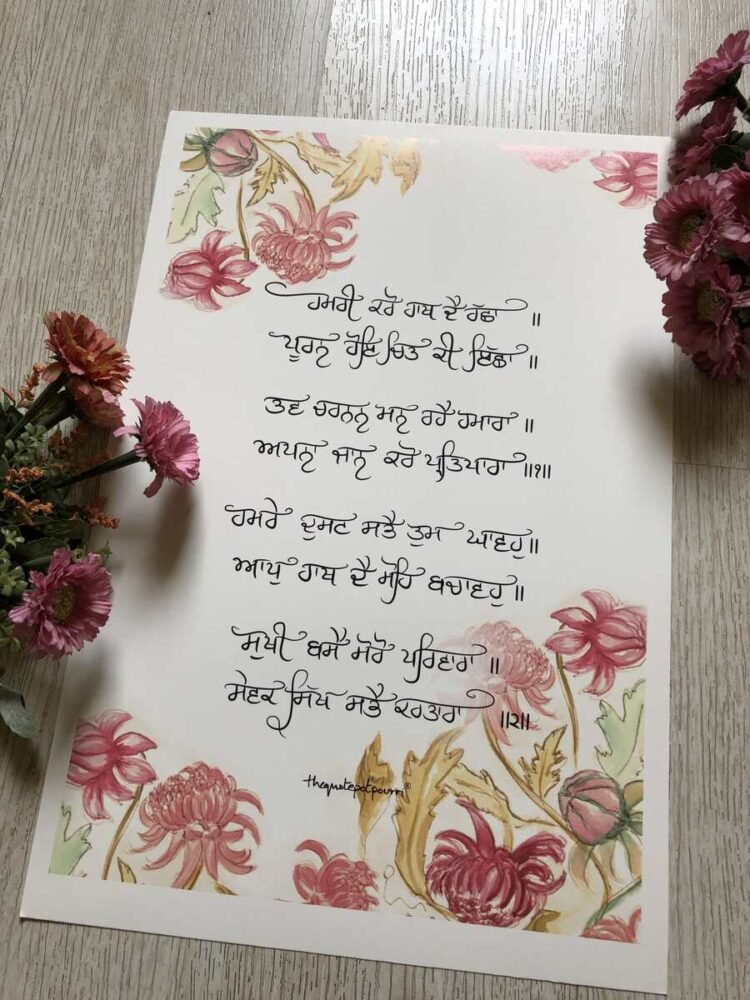 ਹਮਰੀ ਕਰੋ ਹਾਥ ਦੈ ਰੱਛਾ ॥
ਪੂਰਨ ਹੋਇ ਚਿਤ ਕੀ ਇੱਛਾ ॥
ਤਵ ਚਰਨਨ ਮਨ ਰਹੈ ਹਮਾਰਾ ॥
ਅਪਨਾ ਜਾਨ ਕਰੋ ਪ੍ਰਤਿਪਾਰਾ ॥੧॥
ਹਮਰੇ ਦੁਸਟ ਸਭੈ ਤੁਮ ਘਾਵਹੁ॥
ਆਪੁ ਹਾਥ ਦੈ ਮੋਹਿ ਬਚਾਵਹੁ॥
ਸੁਖੀ ਬਸੈ ਮੋਰੋ ਪਰਿਵਾਰਾ ॥
ਸੇਵਕ ਸਿੱਖ ਸਭੈ ਕਰਤਾਰਾ ॥੨॥
thequotepotpourri®